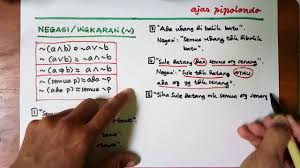 ajar pipolondo
NEGASI/INGKARAN (~)
~(a∧b) ≡ ~a∨~b
~(a∨b) ≡ ~a∧~b
~(a⇒b) ≡ a∧~b
~(semua p) ≡ ada ~p
~(ada p) ≡ semua ~p
1 "Ada udang di balik batu".
Negasi: "Semua udang tdk dibalik
batu".
2 "Sule datang dan semua org senang
Negasi: "Sule tdk datang ATAU
ada org yg tdk senang".
3 "Jika Sule datang mk semua org senang
1